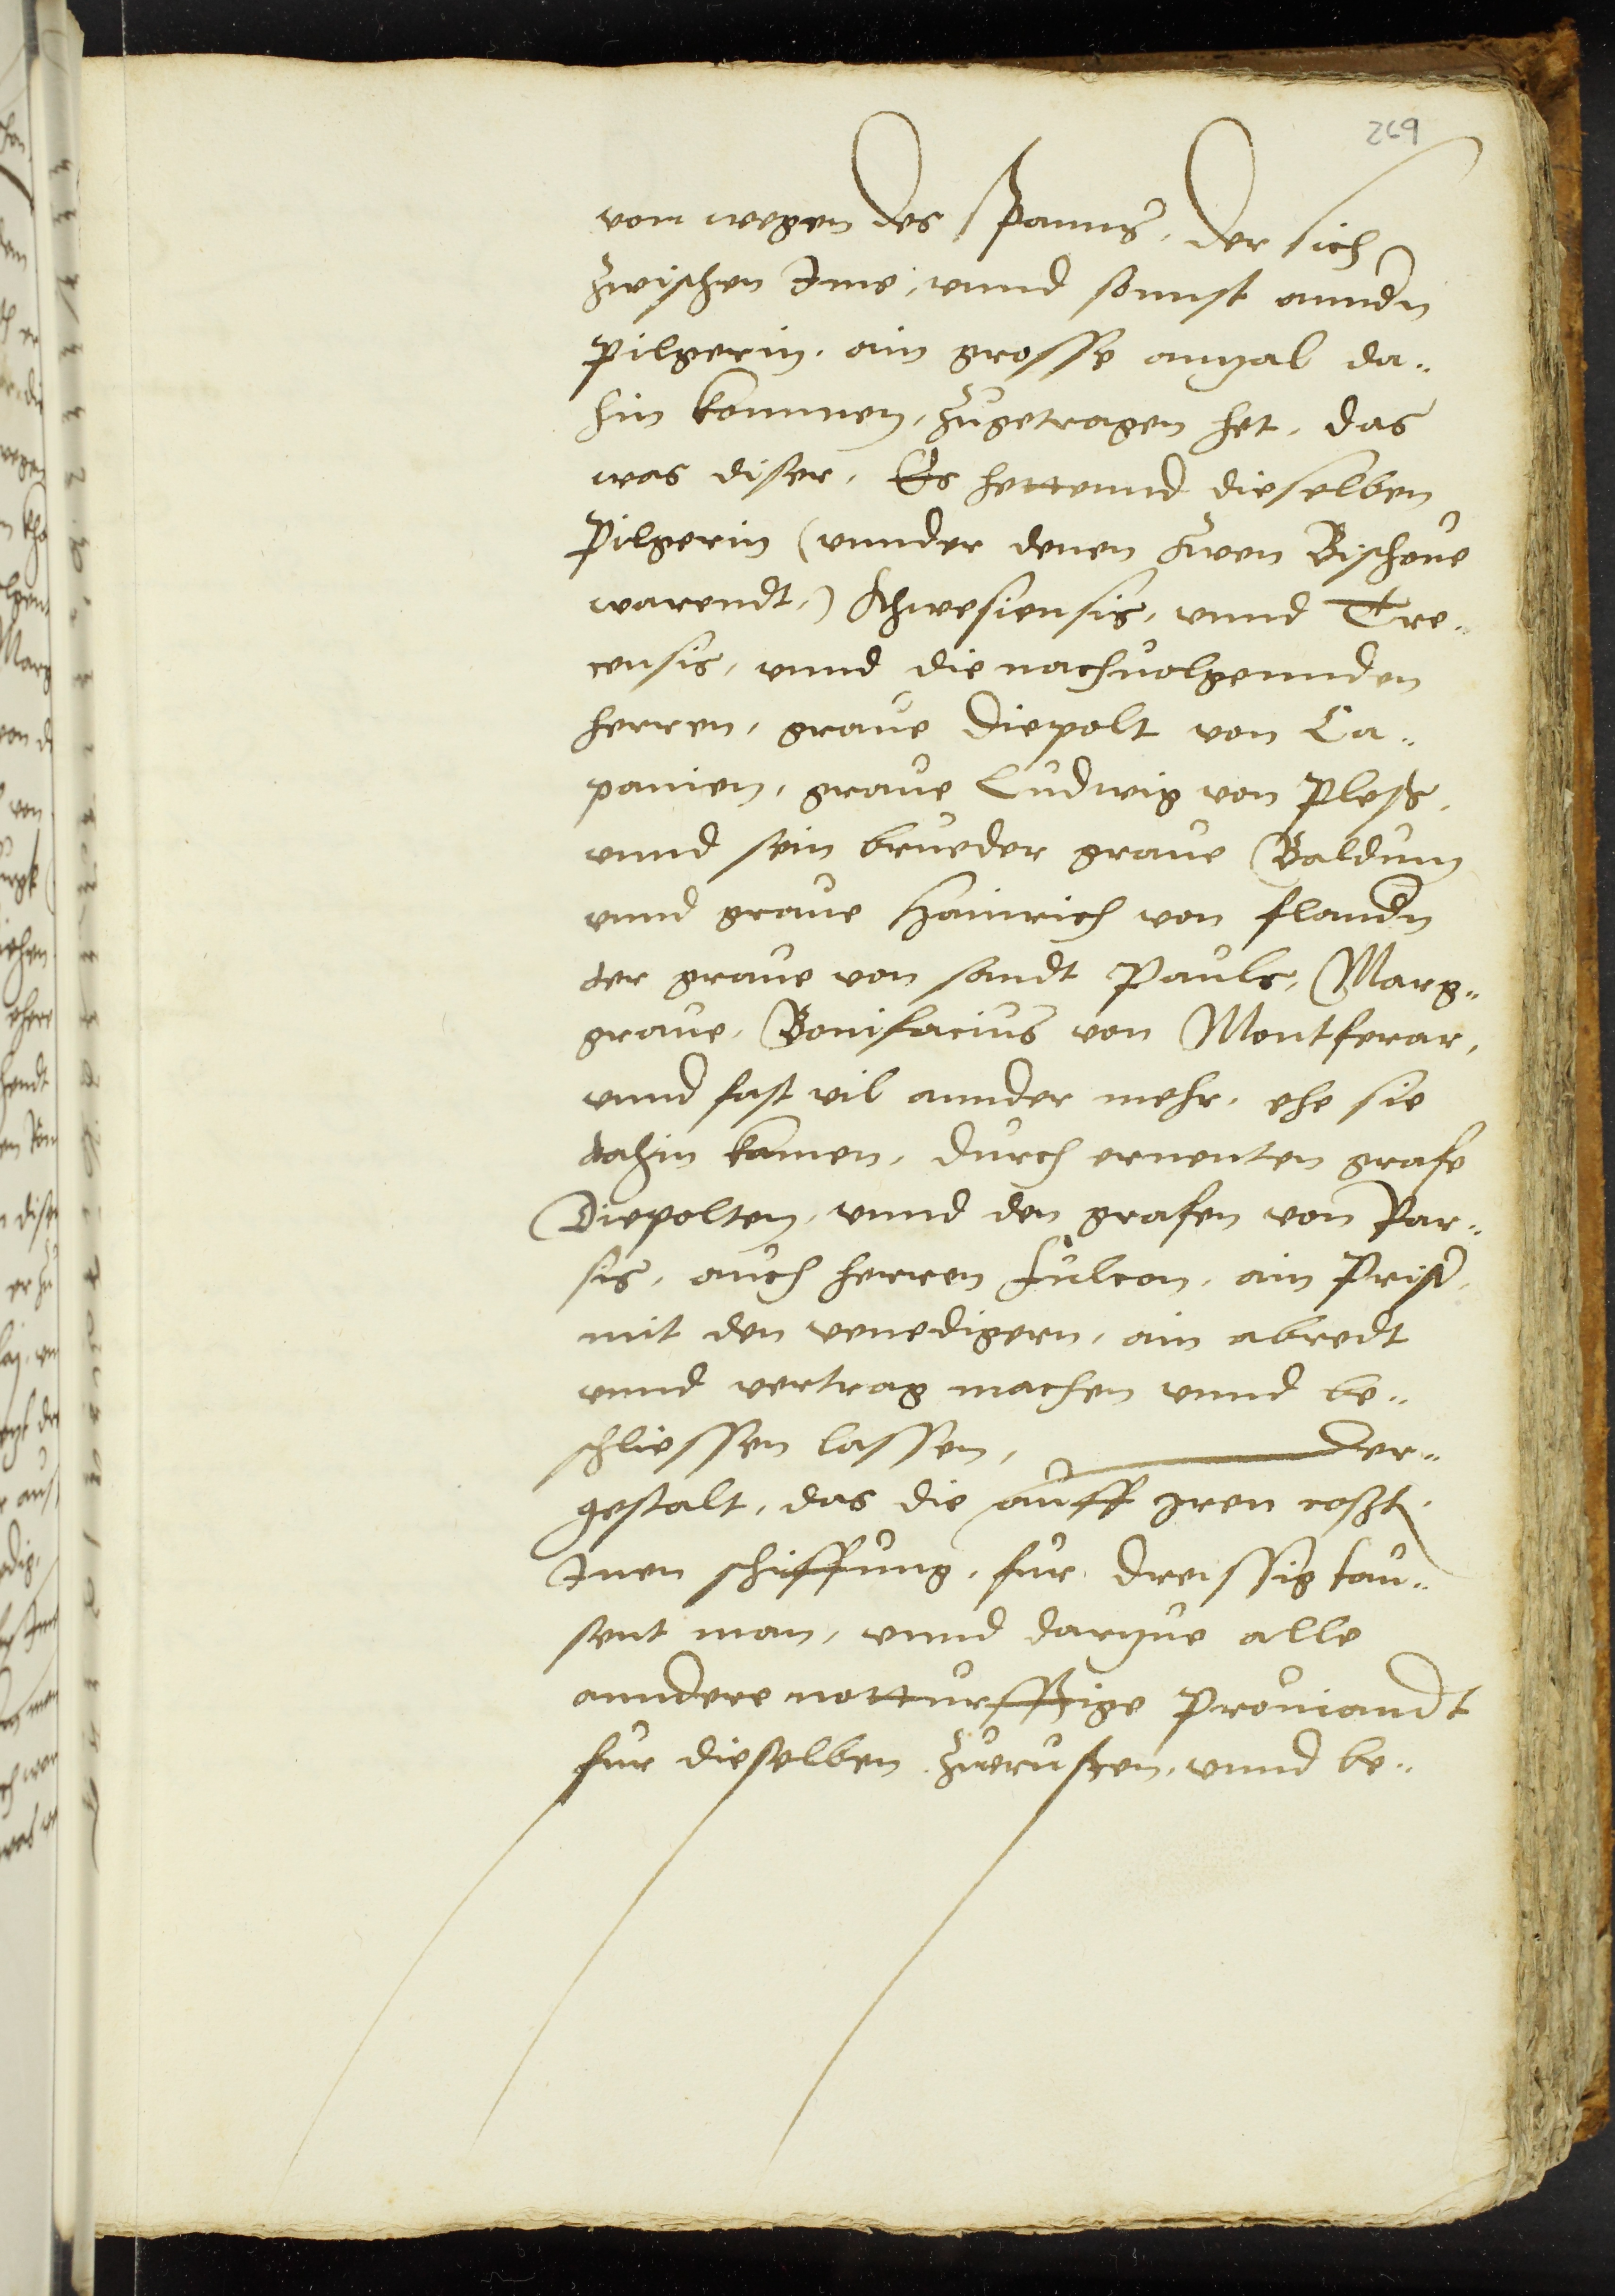 269
von wegen des spanns, der sich
zwischen Ime, vnnd sonnst anndn
Pilgerin, ain grosse anzal da„
hin kommen, zugetragen het, das
was diser, Es hettennd dieselben
Pilgerin (vnnder denen zwen Bischoue
warendt,) Schwesiensis, vnnd Tre„
censis, vnnd die nachuolgennden
herren, graue Diepolt von Ca„
panien, graue Ludwig von Pleß,
vnnd sein brueder graue Balduin
vnnd graue Hainrich von flandn
der graue von sandt Pauls, Marg„
graue, Bonifacius von Montferar,
vnnd fast vil annder mehr, ehe sie
dahin kamen, durch ernenten grafe
Diepolten, vnnd den grafen von Par„
sis, auch herren Fulcon, ain Prist
mit den venedigern, ain abredt
vnnd vertrag machen vnnd be„
schliessen lassen, der„
gestalt, das die auff iren cosst,
Inen schiffung, fur dreissig tau„
sent man, vnnd darzue alle
anndere notturfftige Prouiandt
fur dieselben zuerusten, vnnd be„